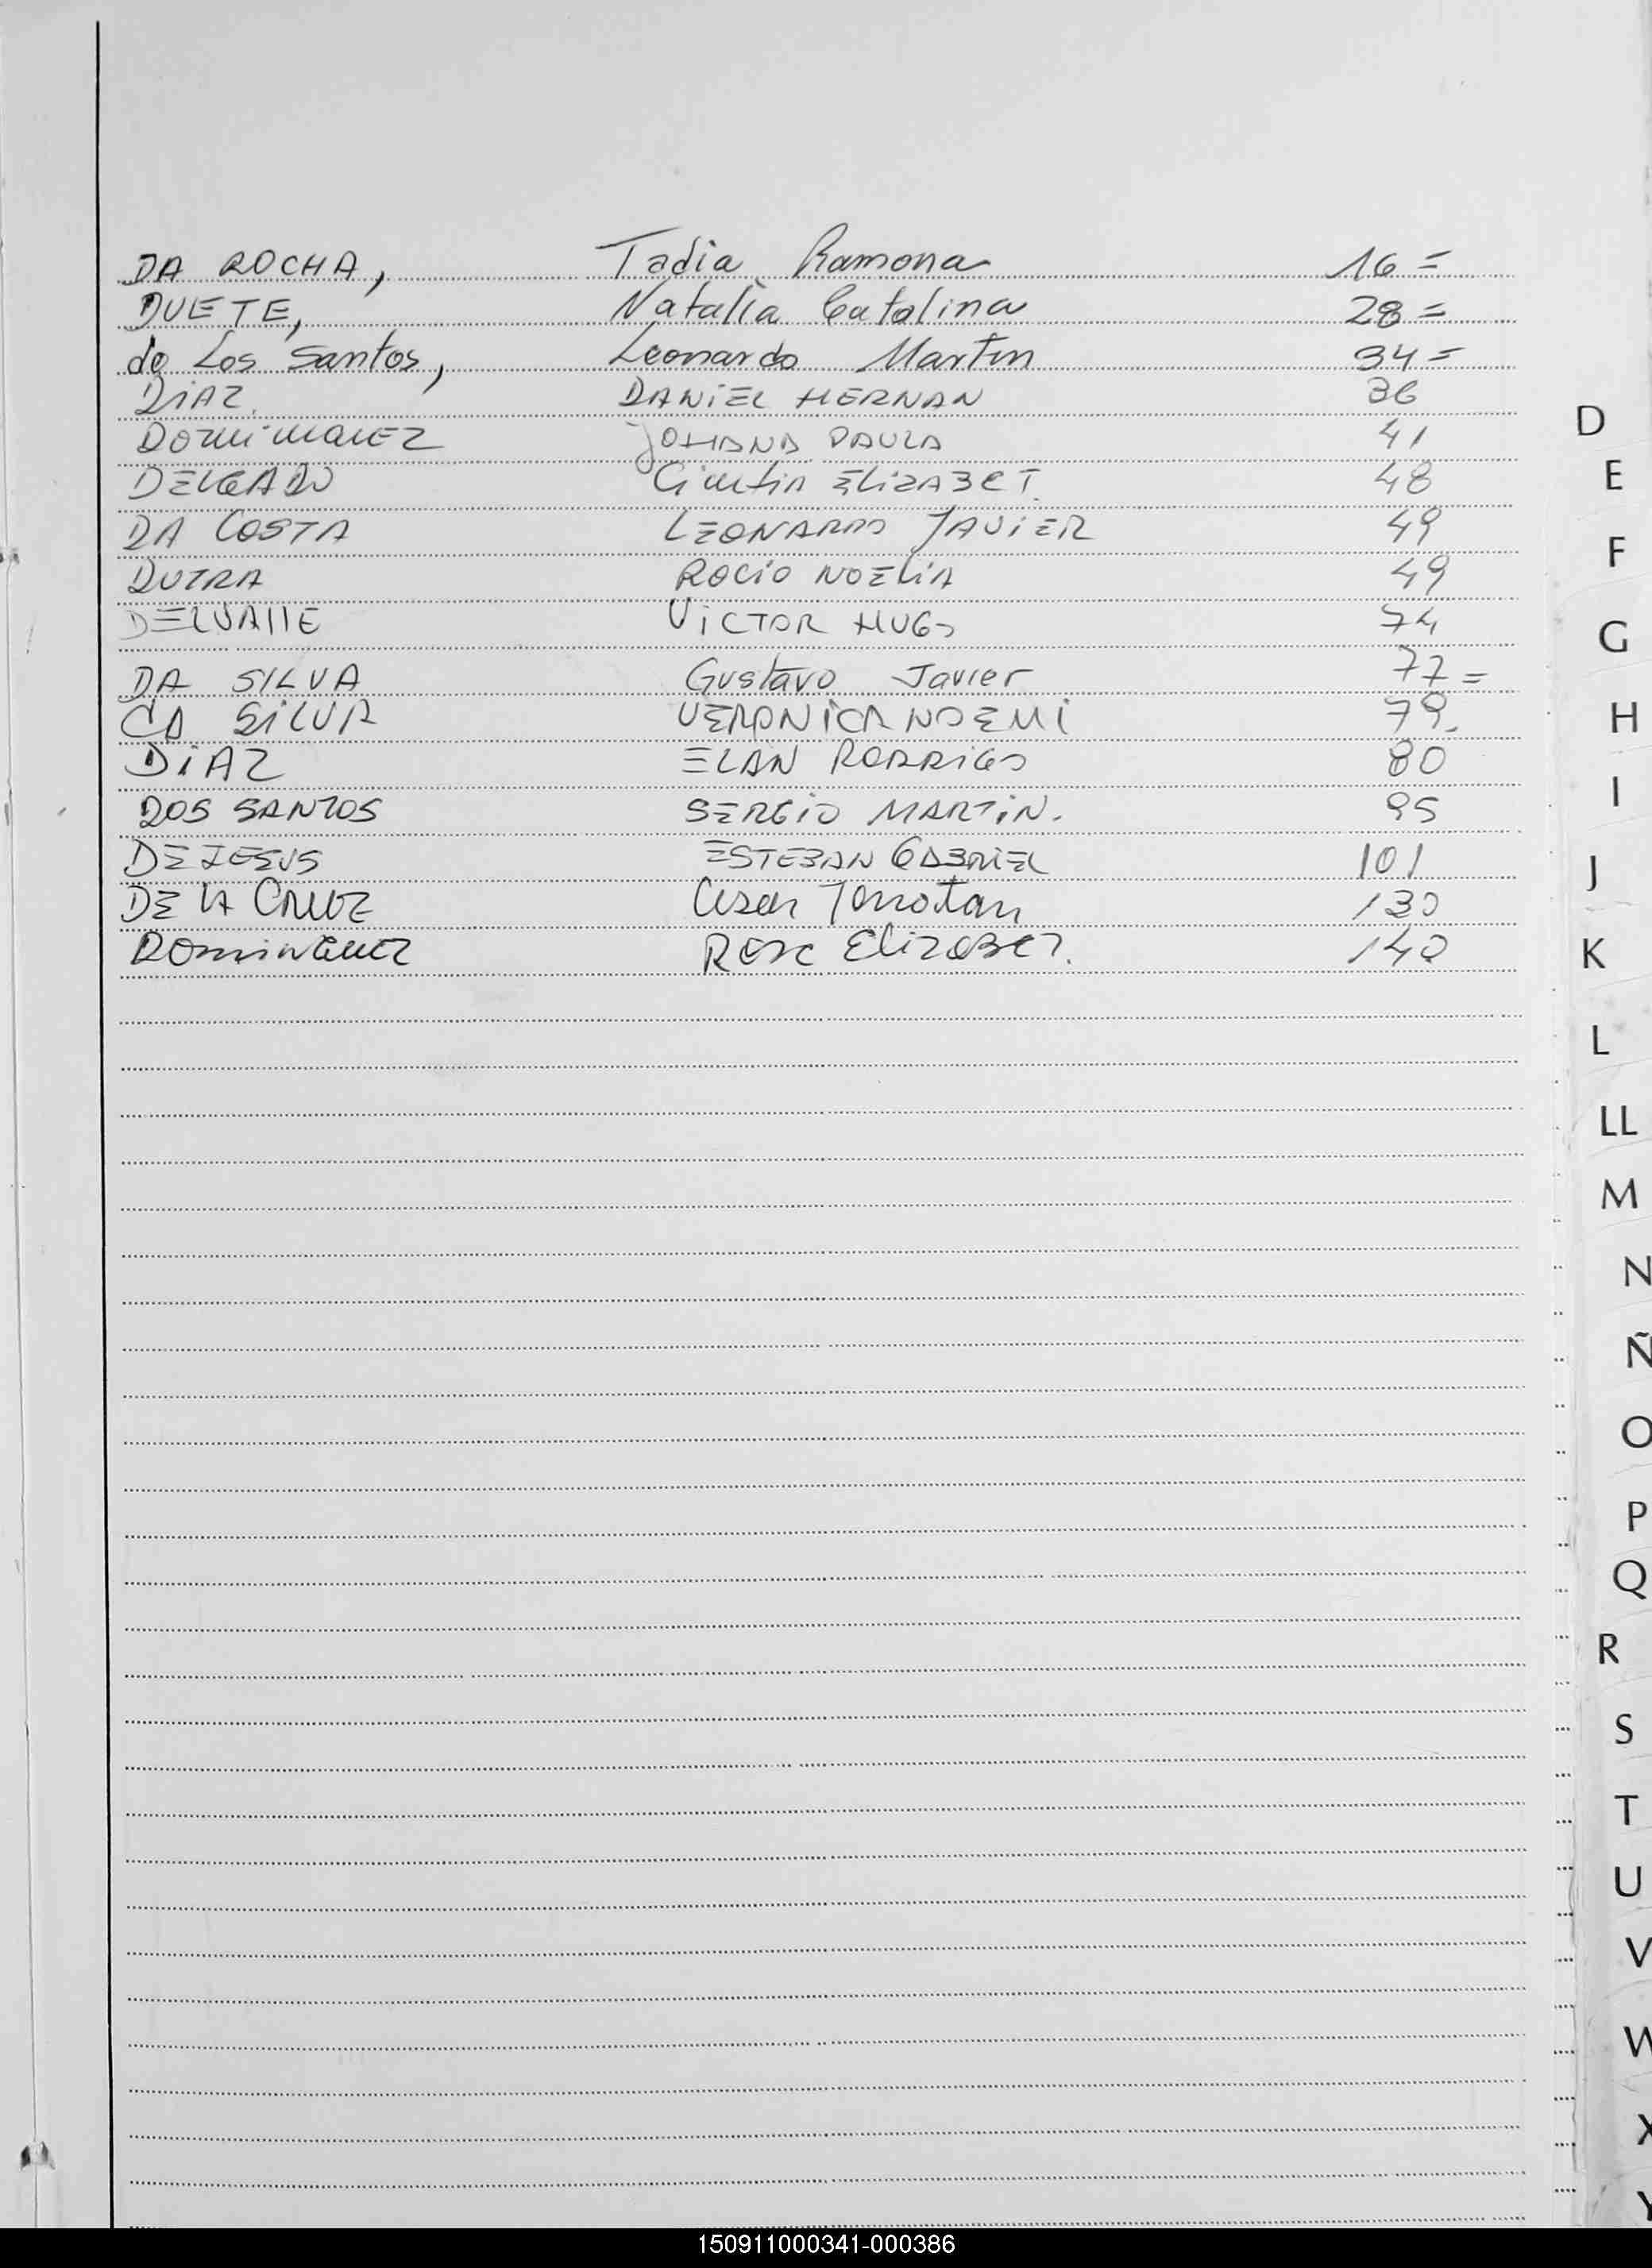 DA ROCHA, Tadia Ramona 16 =
DUETE, Natalia Catalina 28 =
de Los Santos, Leonardo Martin 34 =
DiAZ. DANiEL HERNAN 36
DOMiNGUEZ JOHANA PAULA 41
DELGADO Cintia ELiZABET. 48
DA COSTA LEONARDO JAViER 49
DUTRA ROCiO NOELiA 49
DELVAllE ViCTOR HUGO 74
DA SILVA Gustavo Javier 77 =
DA SiLVA VERONiCA NOEMi 79.
DiAZ ELAN RODRiGO 80
DOS SANTOS SERGiO MARTiN. 95
DE JESUS ESTEBAN GABRiEL 101
DE LA CRUZ Cesar Jonatan 130
DOMiNGUEZ ROSA ELiZABET. 140
D
E
F
G
H
I
J
K
L
LL
M
N
Ñ
O
P
Q
R
S
T
U
V
W
X
Y
150911000341-000386